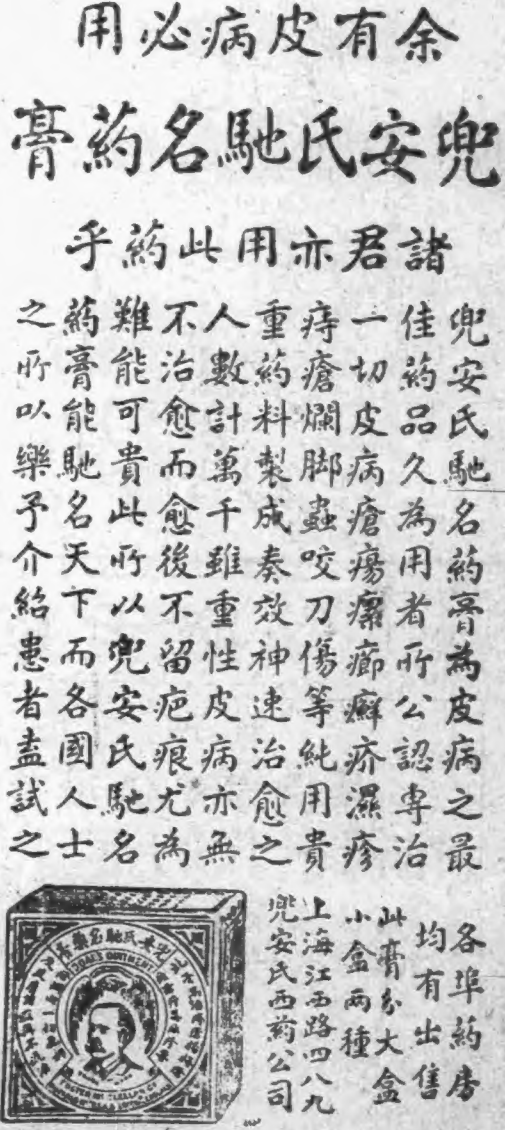 余有皮病必用
兜安氏馳名葯膏
諸君亦用此葯乎
兜安氏馳名葯膏為皮病之最
佳葯品久為用者所公認專治
一切皮病瘡瘍瘰癤癬疥濕疹
痔瘡爛脚蟲咬刀傷等純用貴
重葯料製成奏效神速治愈之
人數計萬千雖重性皮病亦無
不治愈而愈後不留疤痕尤為
難能可貴此所以兜安氏馳名
葯膏能馳名天下而各國人士
之所以樂予介紹患者盍試之
各埠葯房
均有出售
此膏分大盒
小盒兩種
上海江西路四八九
兜安氏西葯公司
兜安氏馳名藥膏
DOAN'S OINTMENT
FOSTER-McCLELLAN CO